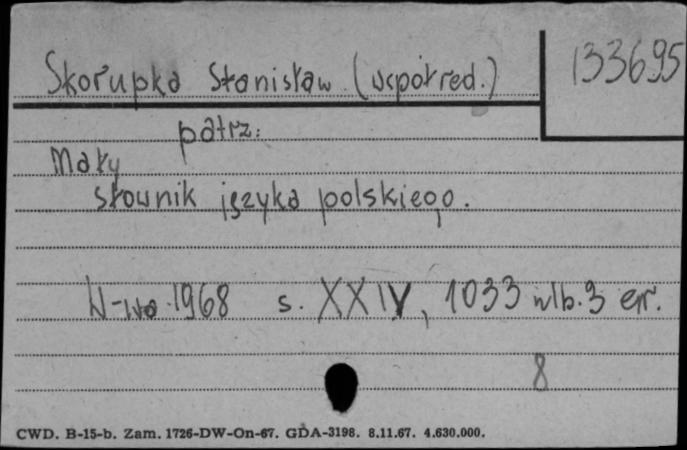 Skorupka Stanisław (współred.) 133695
patrz:
Mały
słownik języka polskiego.
W-wa 1968 s. XXIV, 1033 nlb. 3 err.
8
CWD. B-15-b. Zam. 1726-DW-On-67. GDA-3198. 8.11.67. 4.630.000.